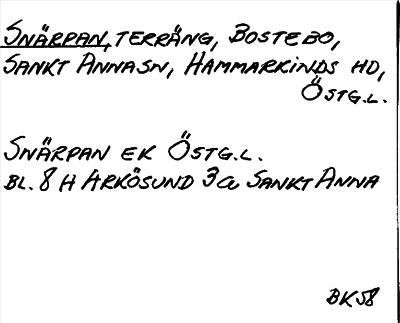 SNÄRPAN, TERRÄNG, BOSTEBO,
SANKT ANNASN, HAMMARKINDS HD,
ÖSTG.L.
SNÄRPAN EK ÖSTG.L.
BL. 8 H ARKÖSUND 3a SANKT ANNA
BK58